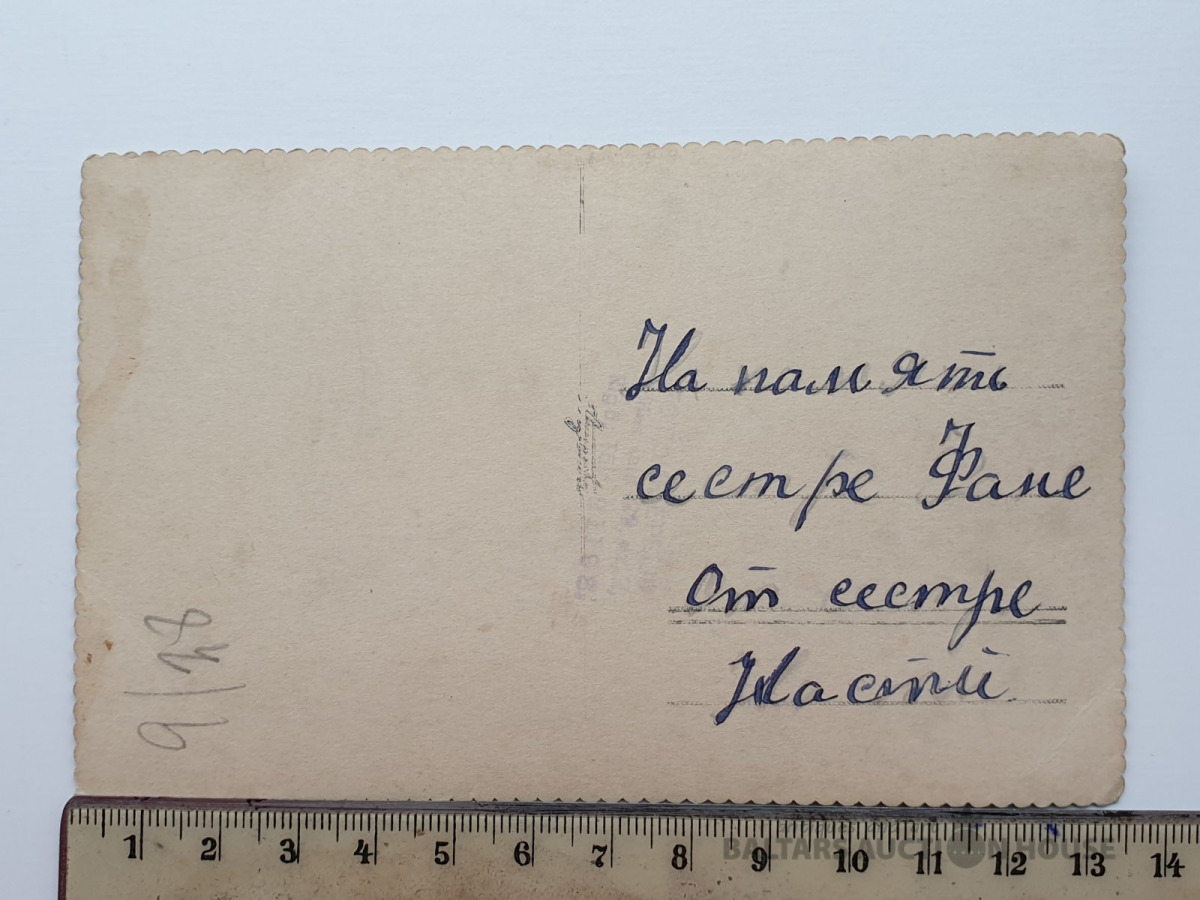 На память
сестре Фане
От сестре
Насти
9/28
1 2 3 4 5 6 7 8 9 10 11 12 13 14
BALTARS AUCTION HOUSE